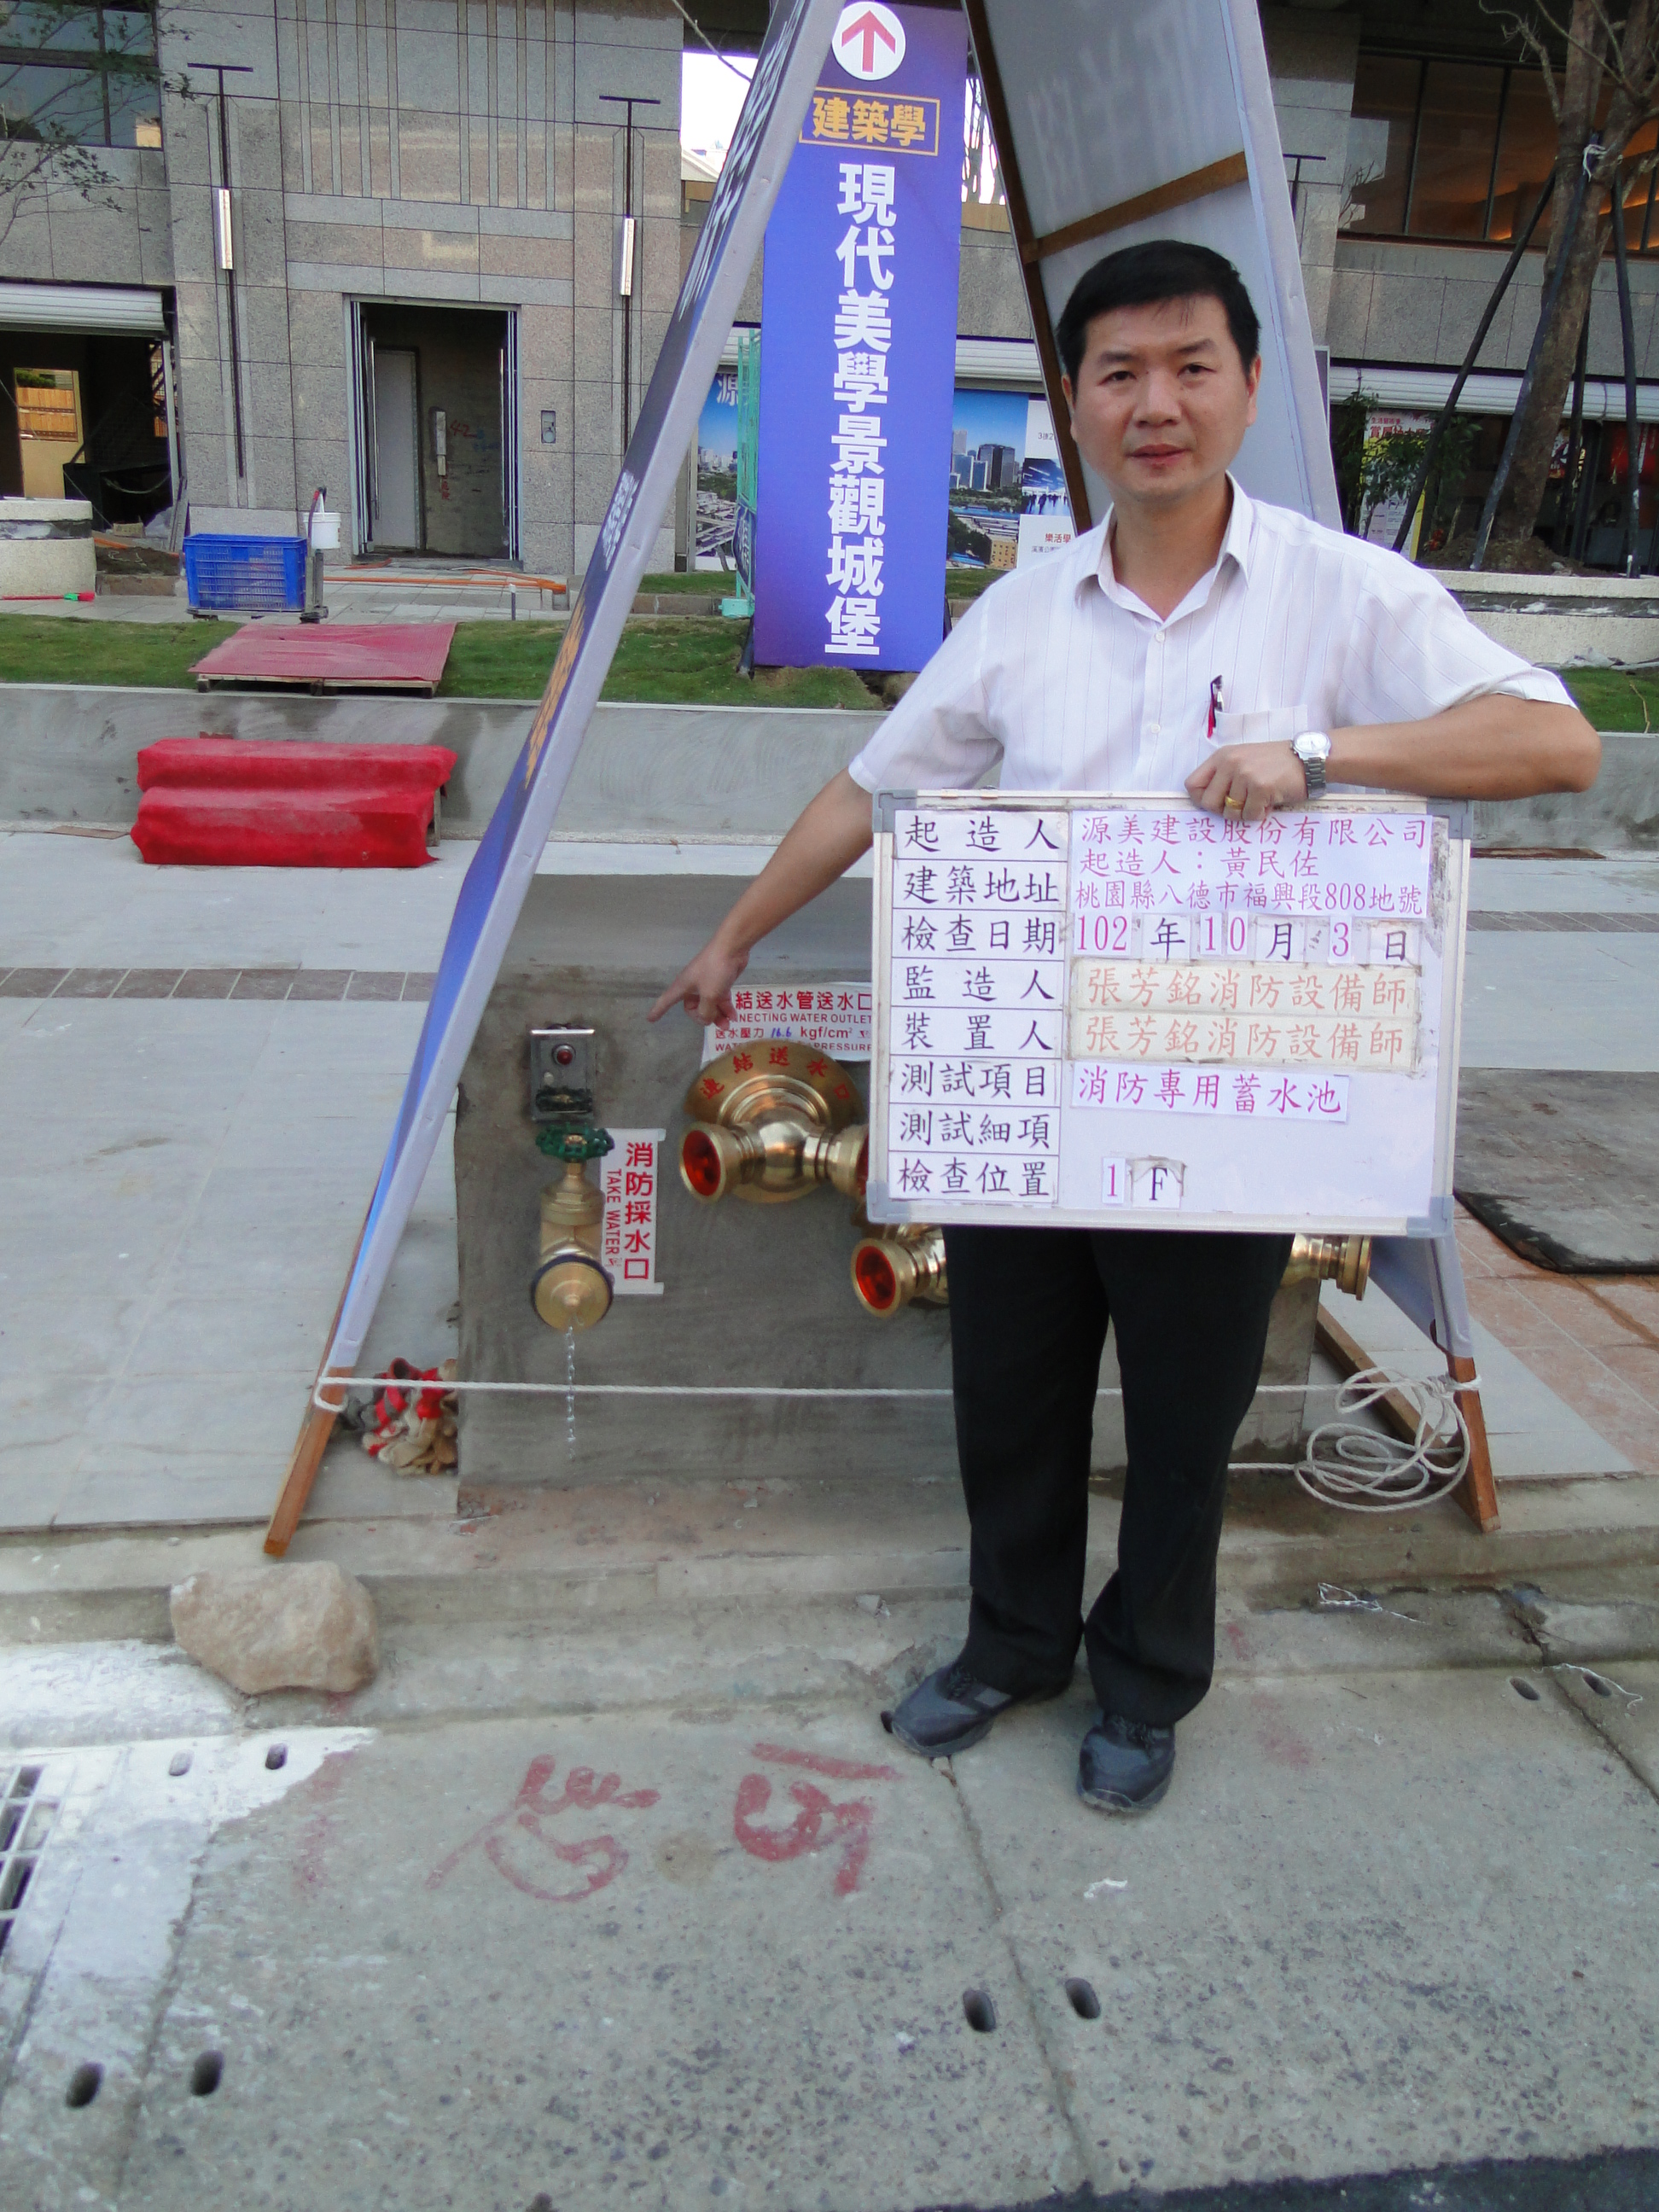 建築學
現代美學景觀城堡
源
3房2
樂活學
起造人 源美建設股份有限公司
起造人：黃民佐
建築地址 桃園縣八德市福興段808地號
檢查日期 102年10月3日
監造人 張芳銘消防設備師
裝置人 張芳銘消防設備師
測試項目 消防專用蓄水池
測試細項
檢查位置 1F
結送水管送水口
NNECTING WATER OUTLET
送水壓力 16.6 kgf/cm²
PRESSURE
連結送水口
消防採水口
TAKE WATER